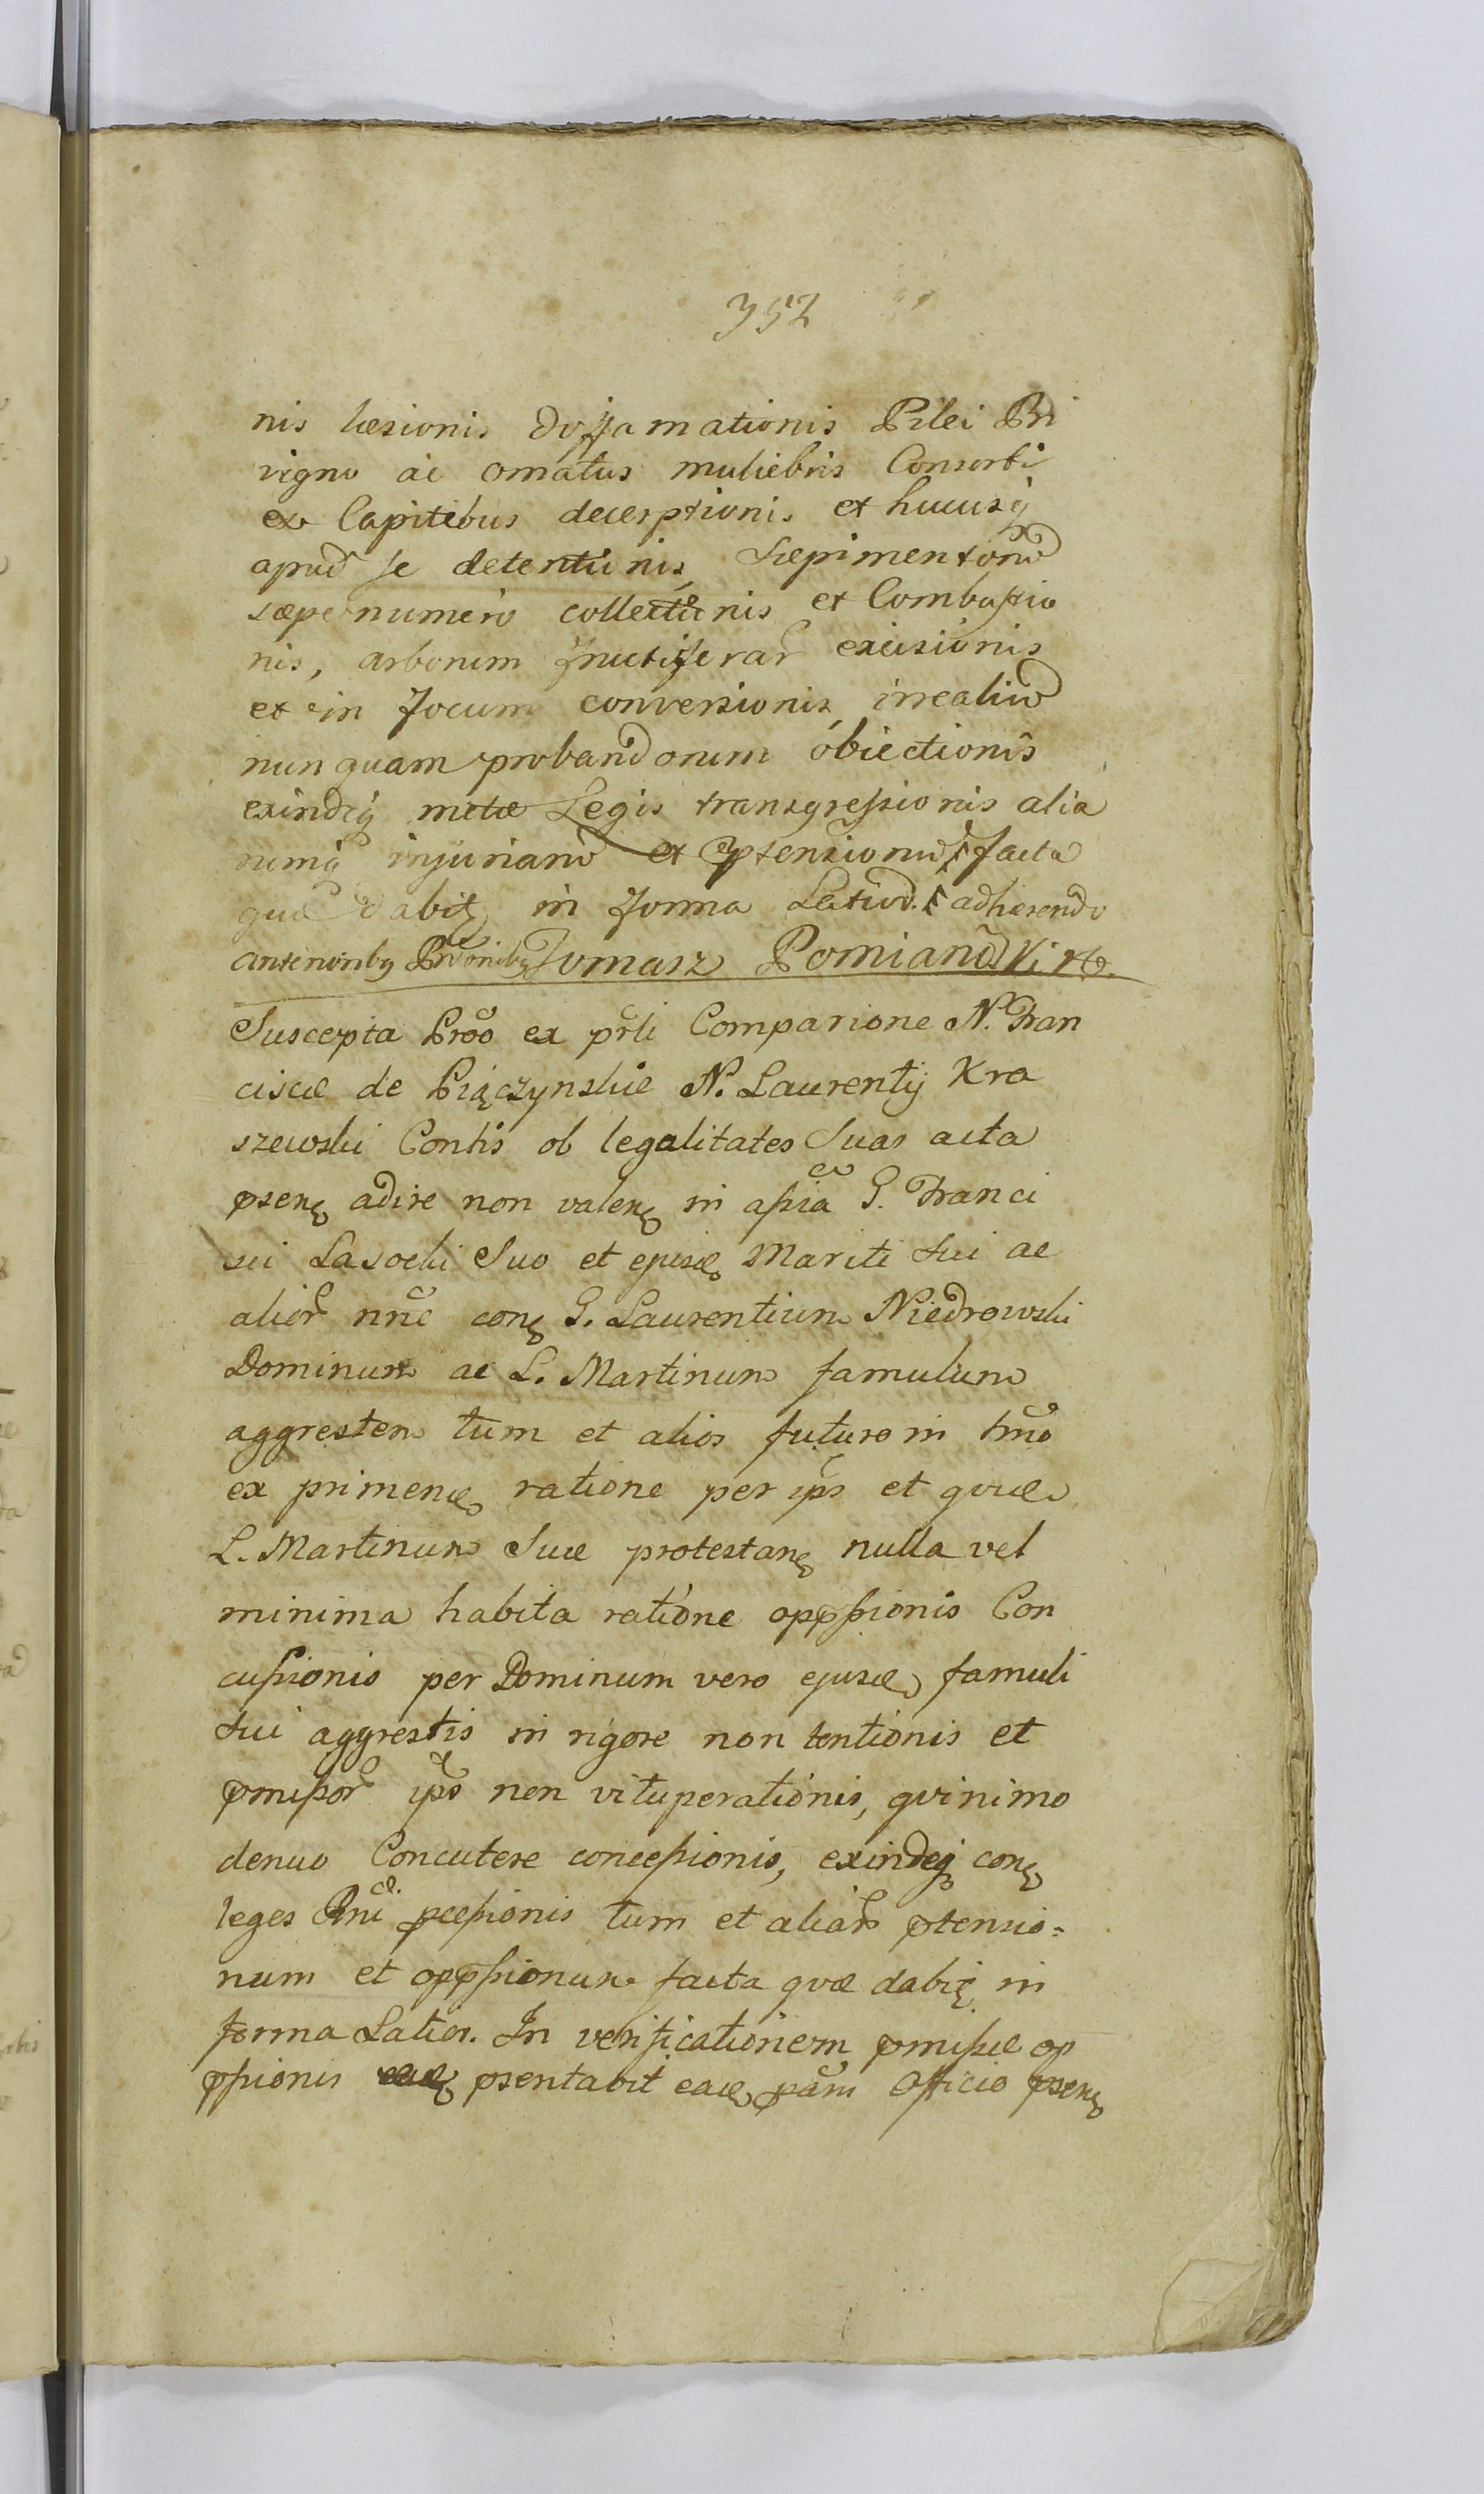 352
nis læsionis diffamationis Pilei Pri
vigno ac ornatus muliebris Consorti
ex Capitibus decerptionis et hucusq
apud se detentionis, Sæpimentorũ
sæpe numero collectionis et Combustio
nis, arborum fructiferar̃ excisionis
et in focum conversionis, irrealiũ
nunquam probandorum obiectionis
exindeq metæ Legis transgressionis alia
rumq injuriarũ et ptensionũ facta
quæ dabit, in forma Latiori. adhærendo
anterioribq Tomasz Pomianõ
Suscepta Prõo ex prli Comparione N. Fran
ciscæ de Piączynskie N. Laurentij Kra
szewski Contis ob legalitates Suas acta
psens adire non valens in assia G. Franci
sci Lasocki Suo et ejusd Mariti Sui ac
alior̃ nne con G. Laurentium Niedrowski
Dominum ac L. Martinum famulum
aggrestem tum et alios futuro in tmõ
exprimend ratione per ips et quid
L. Martinum Suæ protestans nulla vel
minima habita ratione oppssionis Con
cussionis per Dominum vero ejusd famuli
Sui aggrestis in rigore non tentionis et
pmissor̃ ips non vituperationis, quinimo
denuo Concutere concessionis, exindeq con
leges Rni pcessionis tum et aliar̃ ptensio=
num et oppssionum facta quæ dabit in
forma Latior. In verificationem pmissæ op
pssionis psentabit eand pãm Officio psens